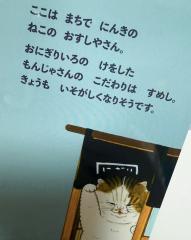 ここは まちで にんきの
ねこの おすしやさん。
おにぎりいろの けをした
もんじゃさんの こだわりは すめし。
きょうも いそがしくなりそうです。
にぎり